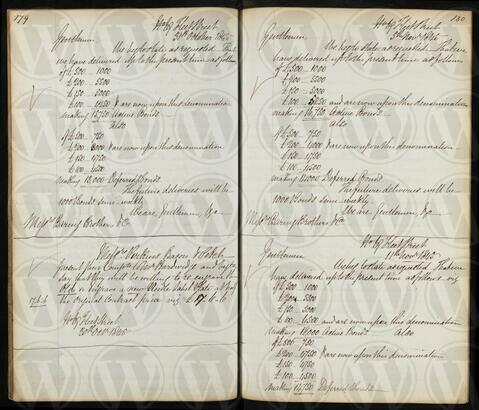 179
No 69 Fleet Street
31st October 1845
Gentlemen
We beg to state as requested that
we have delivered up to the present time as follows
of £500 - 1000
£200 - 5500
£150 - 5000
£100 - 1250 & are now upon this denomination
making 12750 Active Bonds
Also
of £500 - 750
£200 - & are now upon this denomination
£150 - 1750
£100 - 1500
making Deferred Bonds
The future deliveries will be
1000 Bonds some weekly
We are, Gentlemen, &c
Messrs Baring Brothers & Co
Messrs Perkins Bacon & Petch
present their Compts to Messrs and beg to
say that they shall be willing to re-engrave the
old or engrave a new Plate
the original Contract price viz £17.6.6
17.6.6
No 69 Fleet Street
180
No 69 Fleet Street
5th Novr 1845
Gentlemen
We beg to state as requested that we
have delivered up to the present time as follows
of £500 - 1000
£200 - 5500
£150 - 5000
£100 - and are now upon this denomination
making 16,750 Active Bonds
Also
of £500 - 750
£200 - & are now upon this denomination
£150 - 1750
£100 - 1500
making Deferred Bonds
The future deliveries will be
1000 Bonds some weekly
We are, Gentlemen, &c
Messrs Baring Brothers & Co
No 69 Fleet Street
11th Novr 1845
Gentlemen
We beg to state as requested that we
have delivered up to the present time as follows viz
of £500 - 1000
£200 - 5500
£150 - 5000
£100 - 6500 and are now upon this denomination
making 18,000 Active Bonds Also
of £500 - 750
£200 - & are now upon this denomination
£150 - 1750
£100 - 1500
making Deferred Bonds